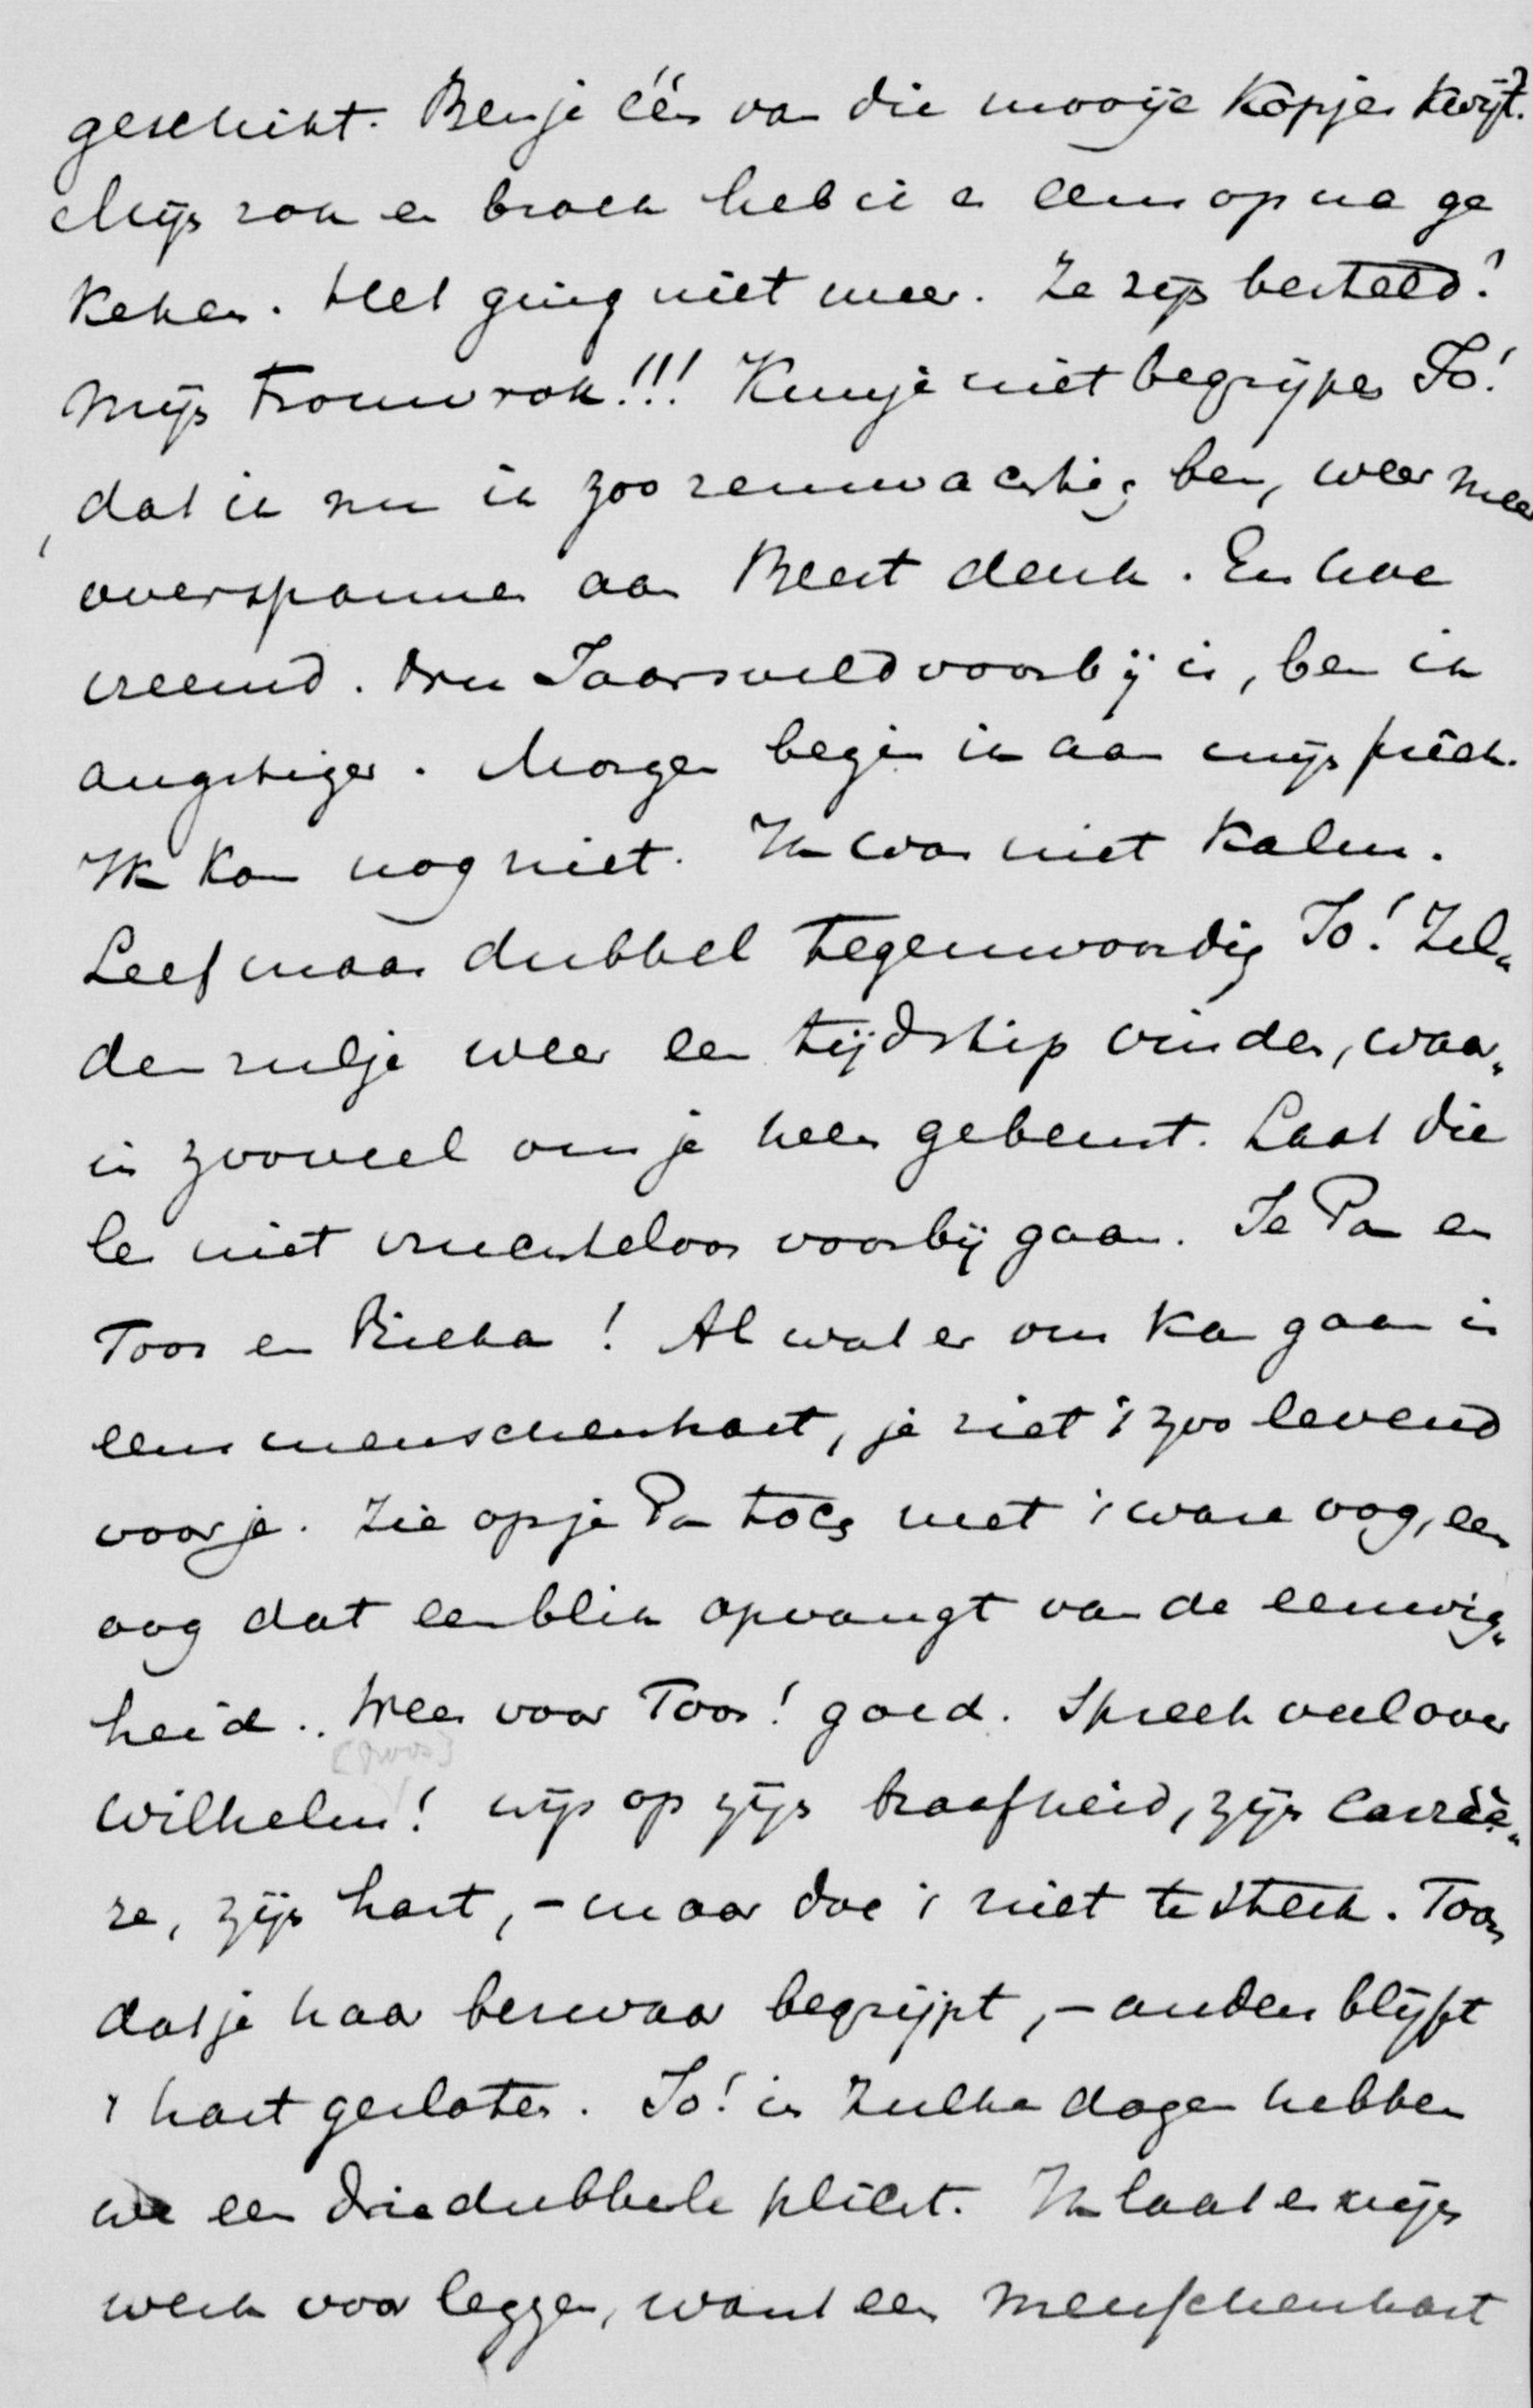 geschikt. Ben je één van die mooije kopjes kwijt?
Mijn rok en broek heb ik er eens op na ge
keken. Het ging niet meer. Ze zijn besteld!
Mijn Trouwrok!!! Kun je niet begrijpen Jo!
dat ik nu ik zoo zenuwachtig ben, weer meer
overspannen aan Beest denk. En hoe
vreemd. Nu Jaarsveld voorbij is, ben ik
angstiger. Morgen begin ik aan mijn preek.
Ik kon nog niet. Ik was niet kalm.
Leef maar dubbel tegenwoordig Jo! Zel„
den zul je weer een tijdstip vinden, waar„
in zooveel om je heen gebeurt. Laat die
les niet vruchteloos voorbij gaan. Je Pa en
Toos en Rieka! Al wat er om kan gaan in
eens menschenhart, je ziet 't zoo levend
voor je. Zie op je Pa toch met 't ware oog, een
oog dat een blik opvangt van de eeuwig„
heid.. Wees voor Toos! goed. Spreek veel over
[Roos]
Wilhelm! wijs op zijn braafheid, zijn carriè„
re, zijn hart, – maar doe 't niet te sterk. Toon
dat je haar bezwaar begrijpt, – anders blijft
't hart gesloten. Jo! in zulke dagen hebben
we een driedubbele plicht. Ik laat er mijn
werk voor leggen, want een menschenhart